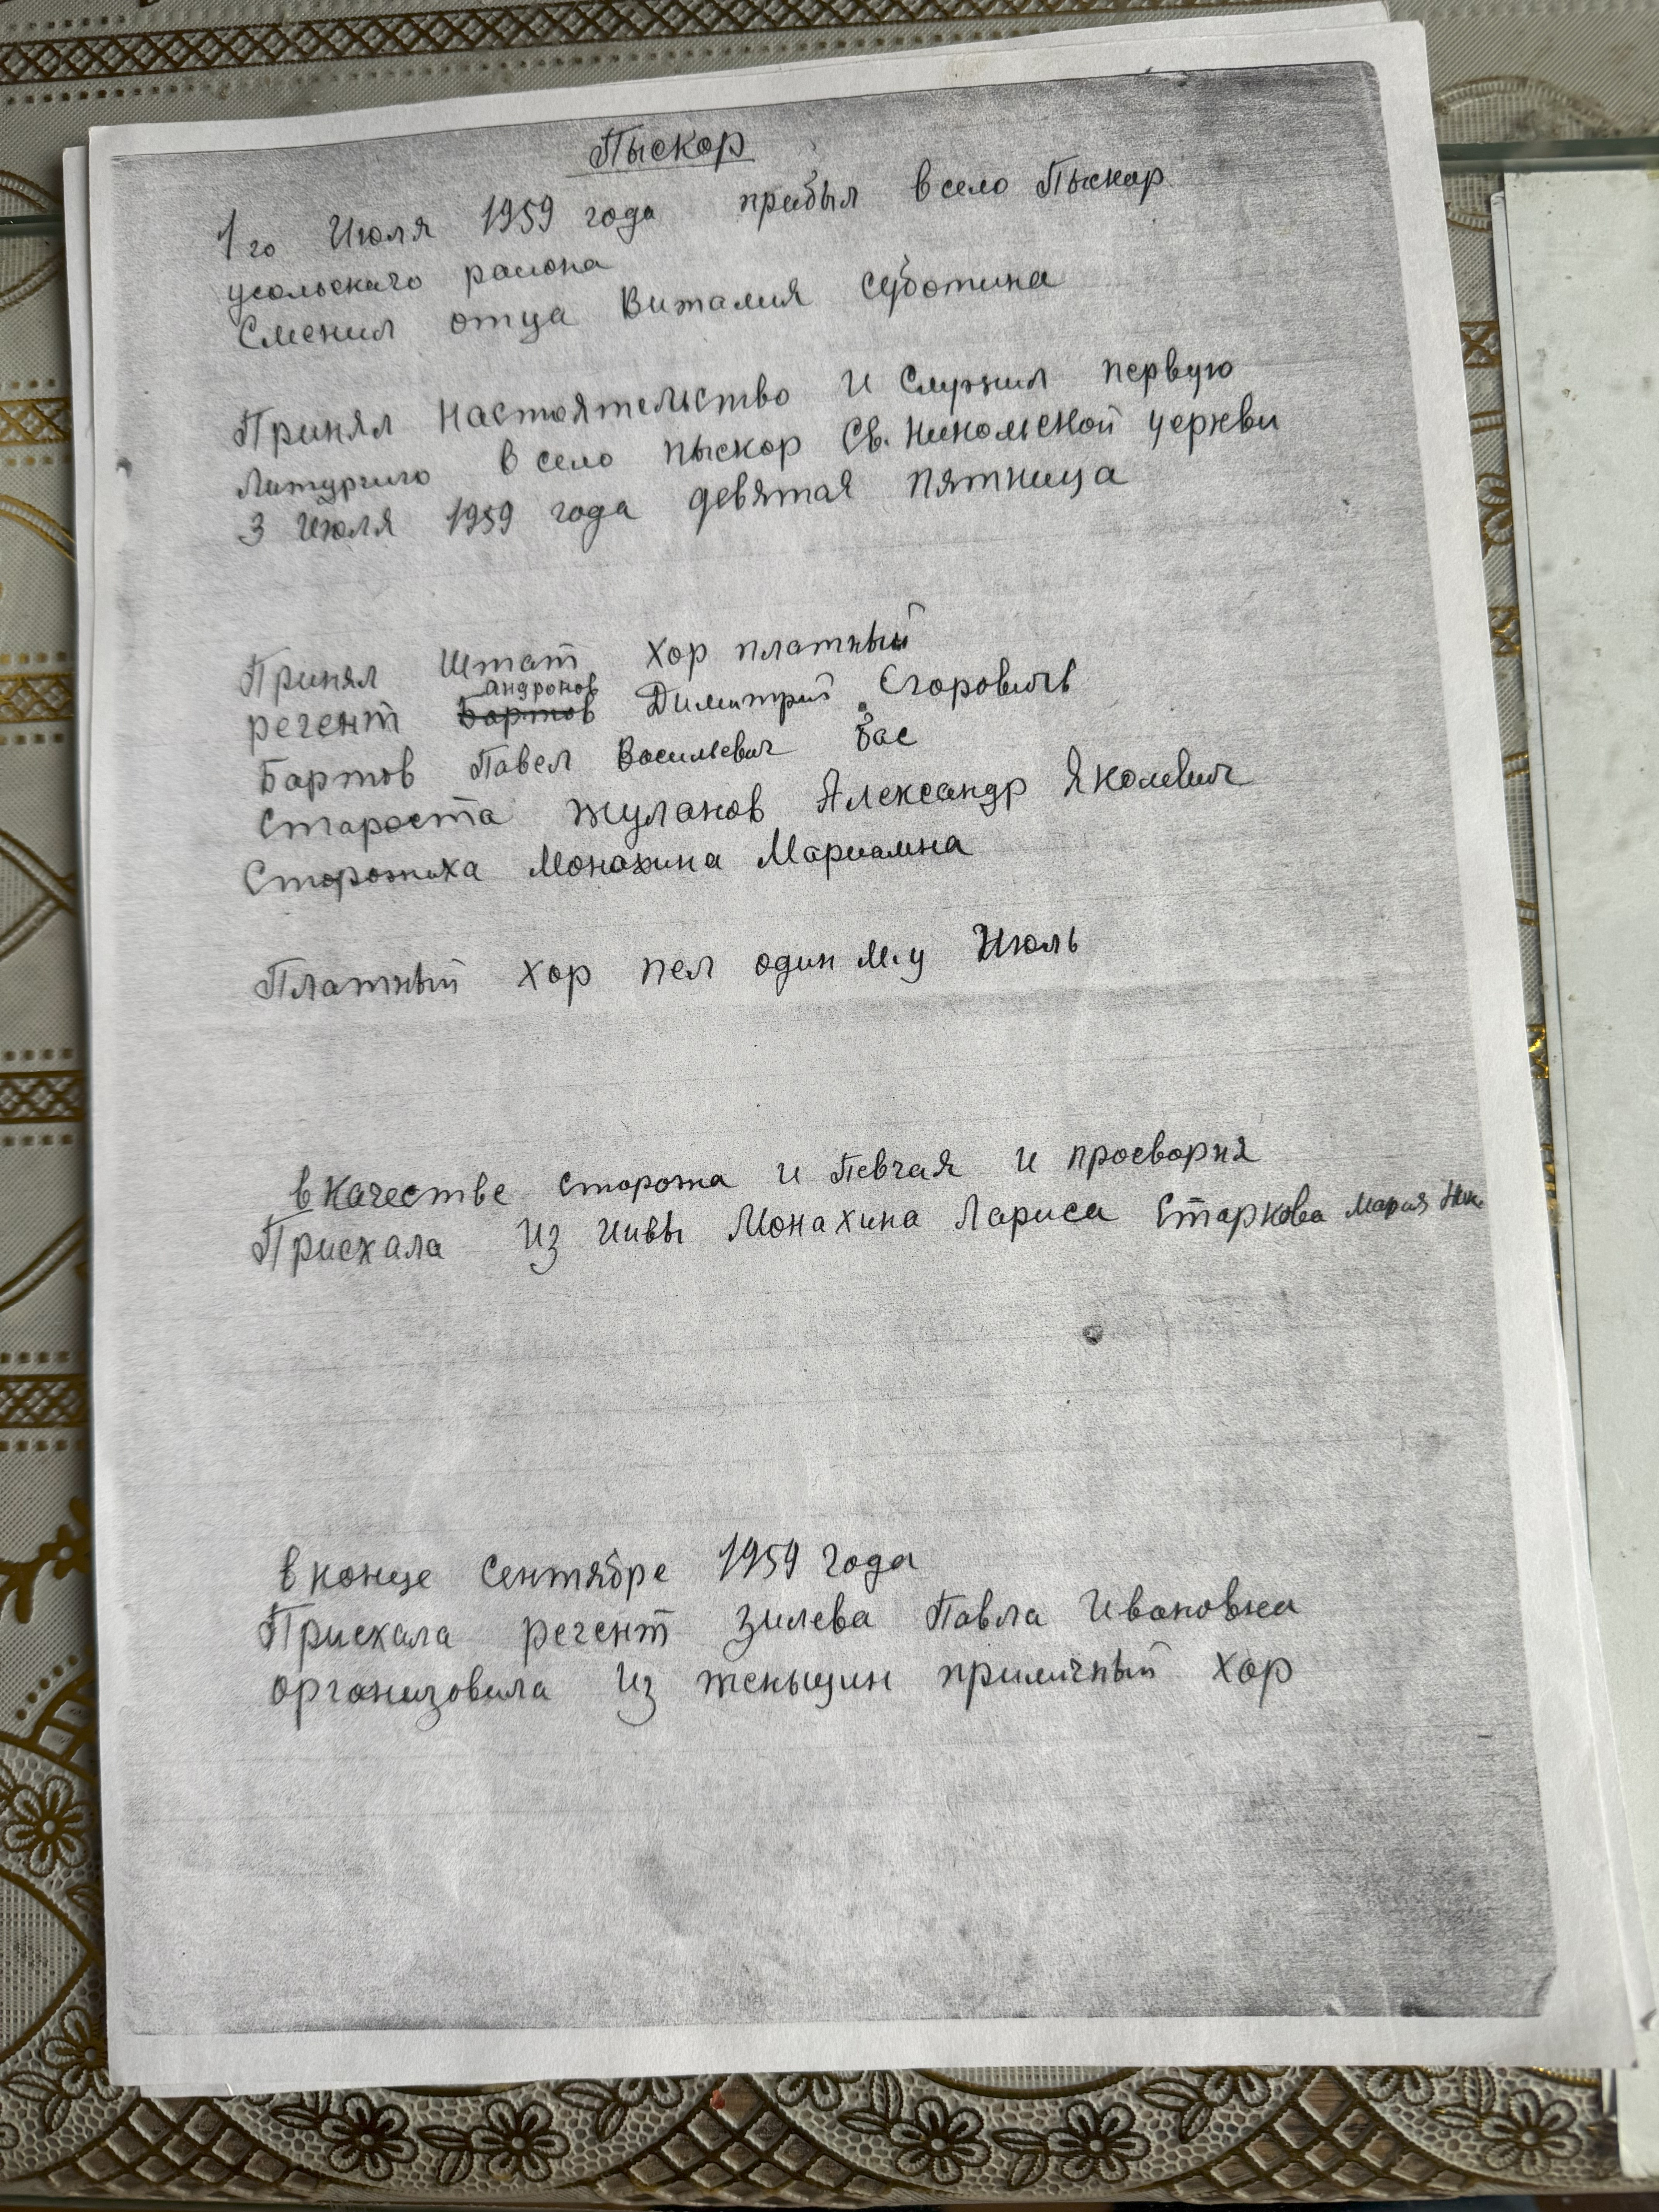 Пыскор
1го Июля 1959 года прибыл в село Пыскор
усольскаго района
Сменил отца Виталия Суботина
Принял Настоятельство и Служил первую
Литургию в село пыскор Св. Никольской церкви
3 Июля 1959 года девятая пятница
Принял Штат Хор платный
андронов
регент Бартов Димитрий Егоровичь
Бартов Павел Васильевич Бас
Староста Жуланов Александр Яколевич
Сторожиха Монахина Мариамна
Платный Хор пел один м.ц Июль
в качестве сторожа и Певчая и просворня
Приехала из Нивы Монахина Лариса Старкова Мария Ник.
в конце Сентябре 1959 года
Приехала регент Зилева Павла Ивановна
организовала из женьщин приличный хор